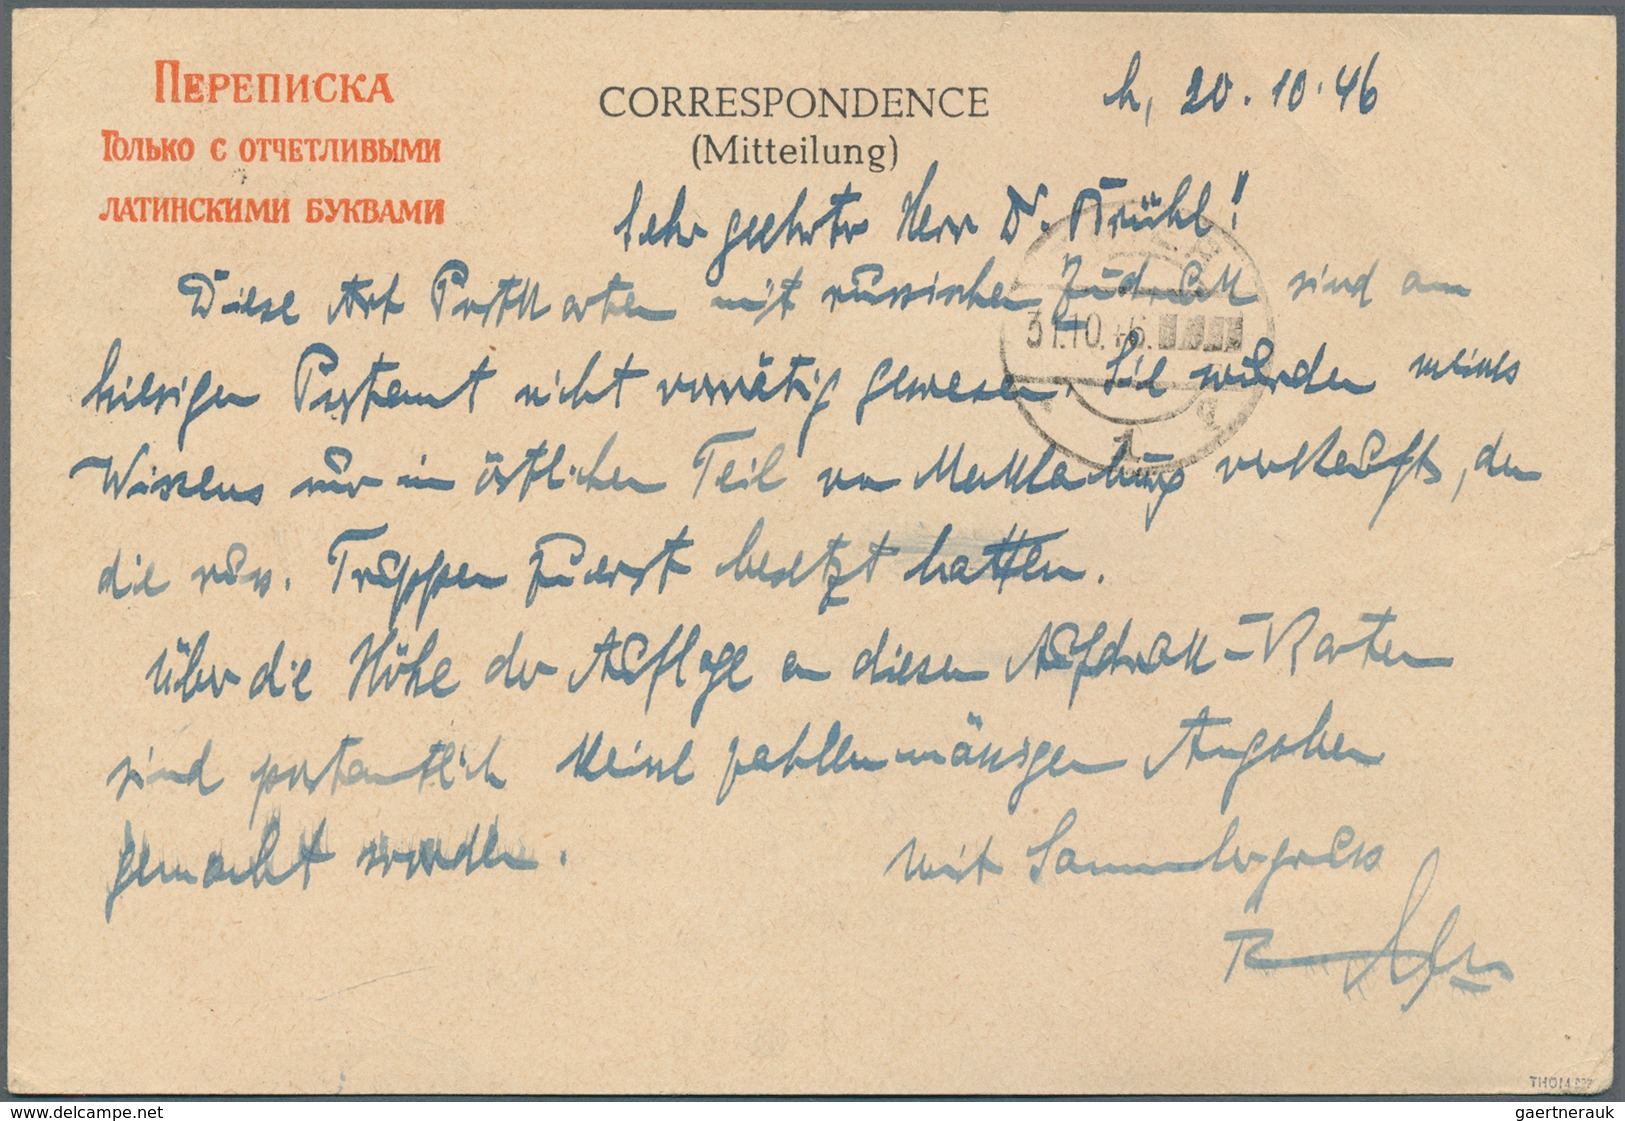 ПЕРЕПИСКА
ТОЛЬКО С ОТЧЕТЛИВЫМИ
ЛАТИНСКИМИ БУКВАМИ
CORRESPONDENCE
(Mitteilung)
h, 20.10.46
Sehr geehrter Herr Dr. Krühl!
Diese Art Postkarten mit russischen Zudruck sind am
31.10.46.
hiesigen Postamt nicht vorrätig gewesen. Sie wurden meines
Wissens nur im östlichen Teil von Mecklenburg verkauft, den
die russ. Truppen zuerst besetzt hatten.
Über die Höhe der Auflage an diesen Aufdruck-Karten
sind postamtlich keine zahlenmässigen Angaben
gemacht worden.
Mit Sammlergruss
gaertnerauk @ delcampe.net